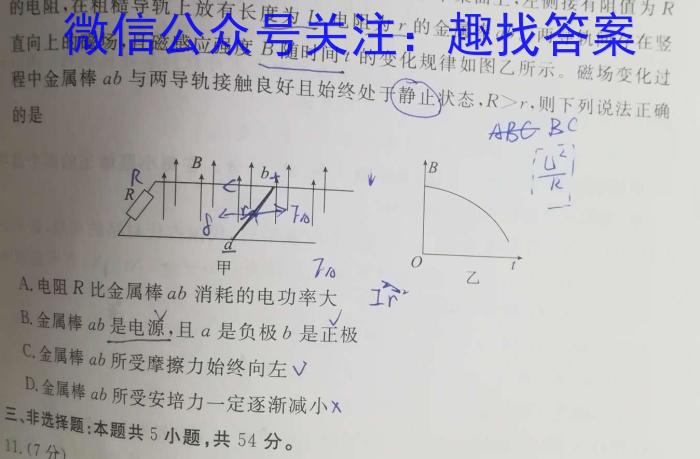 的电阻,在粗糙导轨上放有长度为L、电阻为r的金
左侧接有阻值为R
微信公众号关注：趣找答案
直向上的磁场,且磁感应强度B随时间t的变化规律如图乙所示。磁场变化过
程中金属棒ab与两导轨接触良好且始终处于静止状态,R>r,则下列说法正确
的是
ABC BC
U²
R
R B b
R
a
甲
B
O t
乙
A.电阻R比金属棒ab消耗的电功率大
B.金属棒ab是电源,且a是负极b是正极
C.金属棒ab所受摩擦力始终向左
D.金属棒ab所受安培力一定逐渐减小
三、非选择题:本题共5小题,共54分。
11.(7分)